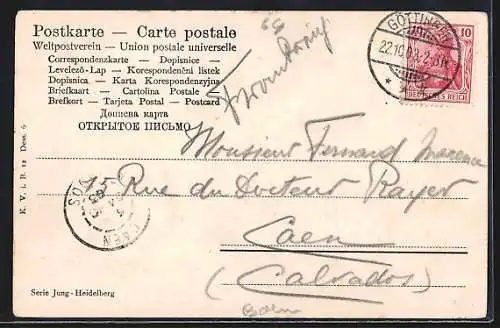 Postkarte - Carte postale
Weltpostverein - Union postale universelle
Correspondenzkarte - Dopisnice -
Levelező-Lap - Korespondenční lístek
Dopisnica - Karta Korespondenzyjna
Briefkaart - Cartolina Postale
Brefkort - Tarjeta Postal - Postcard
Дописна карта
ОТКРЫТОЕ ПИСЬМО
GÖTTINGEN
22.10.03.
10
DEUTSCHES REICH
Monsieur Fernand
15 Rue du Docteur Rayer
Caen
(Calvados)
CAEN
E. V. i. B. 12 Dess. 6
Serie Jung-Heidelberg